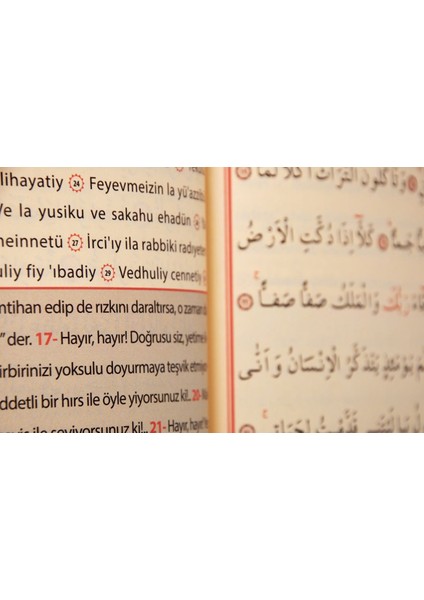 lihayatiy 24 Feyevmeizin la yü'azzib
Ve la yusiku ve sakahu ehadün
neinnetü 27 İrci'ıy ila rabbiki radiyete
uliy fiy 'ıbadiy 29 Vedhuliy cennetiy
ntihan edip de rızkını daraltırsa, o zaman
" der. 17- Hayır, hayır! Doğrusu siz, yetime
irbirinizi yoksulu doyurmaya teşvik etmiyo
ddetli bir hırs ile öyle yiyorsunuz ki!.. 20-
ile seviyorsunuz ki!.. 21- Hayır, hayır!
وَتَأْكُلُونَ التُّرَاثَ اَكْلًا لَمًّا
جَمًّا كَلَّٓا اِذَا دُكَّتِ الْاَرْضُ
رَبُّكَ وَالْمَلَكُ صَفًّا صَفًّا
يَوْمَئِذٍ يَتَذَكَّرُ الْاِنْسَانُ وَاَنّٰى
قَدَّمْتُ لِحَيَاتِي